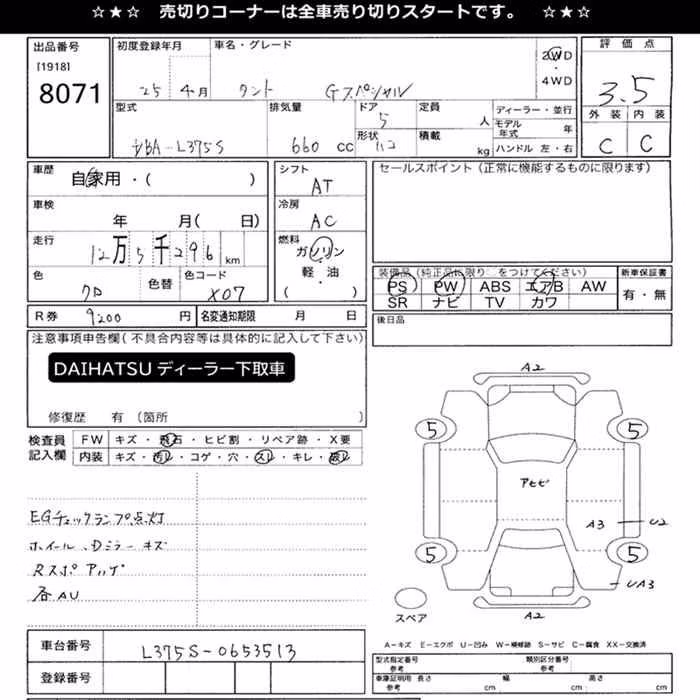 ☆★☆ 売切りコーナーは全車売り切りスタートです。 ☆★☆
出品番号
[1918]
8071
初度登録年月
25 4月
車名・グレード
タント Gスペシャル
2WD
・
4WD
評価点
3.5
外装 内装
C C
型式
DBA-L375S
排気量
660 cc
ドア
5
形状
ハコ
定員
人
積載
kg
ディーラー・並行
モデル年式 年
ハンドル 左・右
車歴
自家用・( )
車検
年 月( 日)
走行
12万5千296 km
色
クロ
色替
色コード
X07
シフト
AT
冷房
AC
燃料
ガソリン
軽・油
( )
セールスポイント(正常に機能するものに限ります)
装備品(純正品に限り○をつけてください)
PS PW ABS エアB AW
SR ナビ TV カワ
新車保証書
有・無
R券 9200 円
名変通知期限 月 日
後日品
注意事項申告欄(不具合内容等は具体的に記入して下さい)
DAIHATSU ディーラー下取車
修復歴 有 (箇所 )
検査員記入欄
FW キズ・飛石・ヒビ割・リペア跡・X要
内装 キズ・汚レ・コゲ・穴・スレ・キレ・破レ
EGチェックランプ点灯
ホイール、Dミラーキズ
Rスポ アリ
各AU
A2
5 5
A3 U2
5 5
UA3
スペア
A2
A-キズ E-エクボ U-凹み W-補修跡 S-サビ C-腐食 XX-交換済
車台番号
L375S-0653513
登録番号
型式指定番号
参考
類別区分番号
参考
車庫証明用
参考
長さ cm
幅 cm
高さ cm